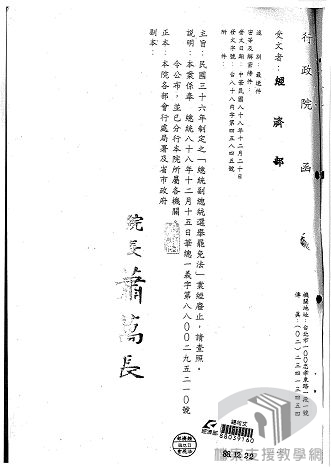 行政院 函
受文者：經濟部
速別：最速件
密等及解密條件：
發文日期：中華民國八十八年十二月二十日
發文字號：台八十八內字第四五八四五號
附件：
機關地址：台北市一００忠孝東路一段一號
傳 真：(０二)二三四一三四五四
主旨：民國三十六年制定之「總統副總統選舉罷免法」業經廢止，請查照。
說明：本案係奉 總統八十八年十二月十五日華總一義字第八八００二九五二一０號
令公布，並已分行本院所屬各機關
正本：本院各部會行處局署及省市政府
副本：
院長 蕭萬長
總收文
經濟部
88039160
88.12.22
援教學網